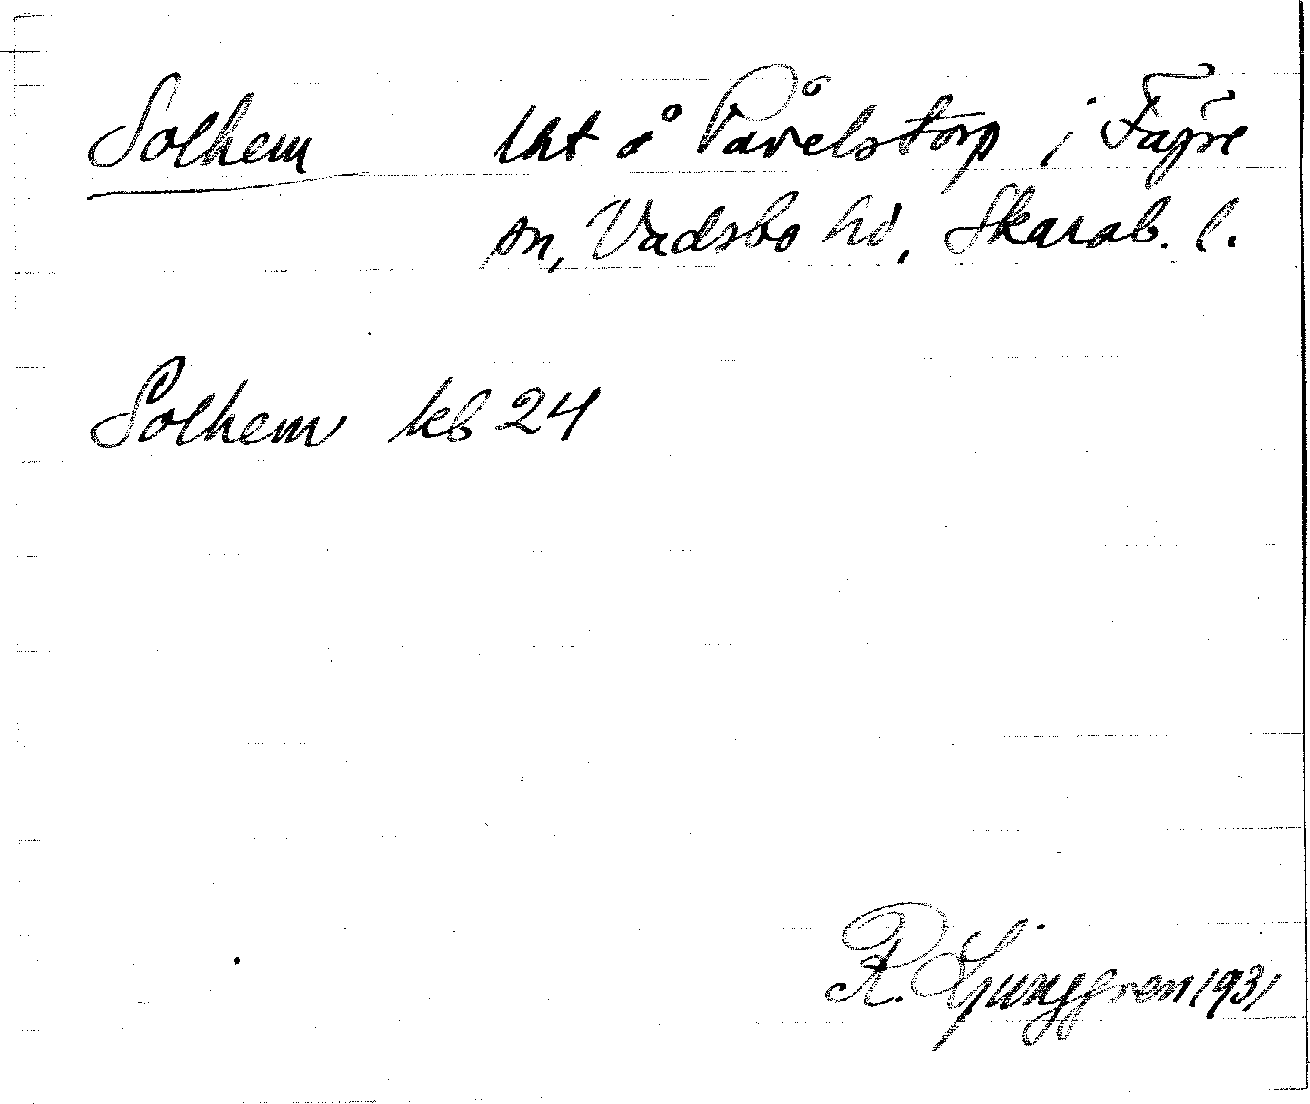 Solhem lht å Påvelstorp i Fägre
sn, Vadsbo hd, Skarab. l.
Solhem kb 24
R. Ljunggren 1931